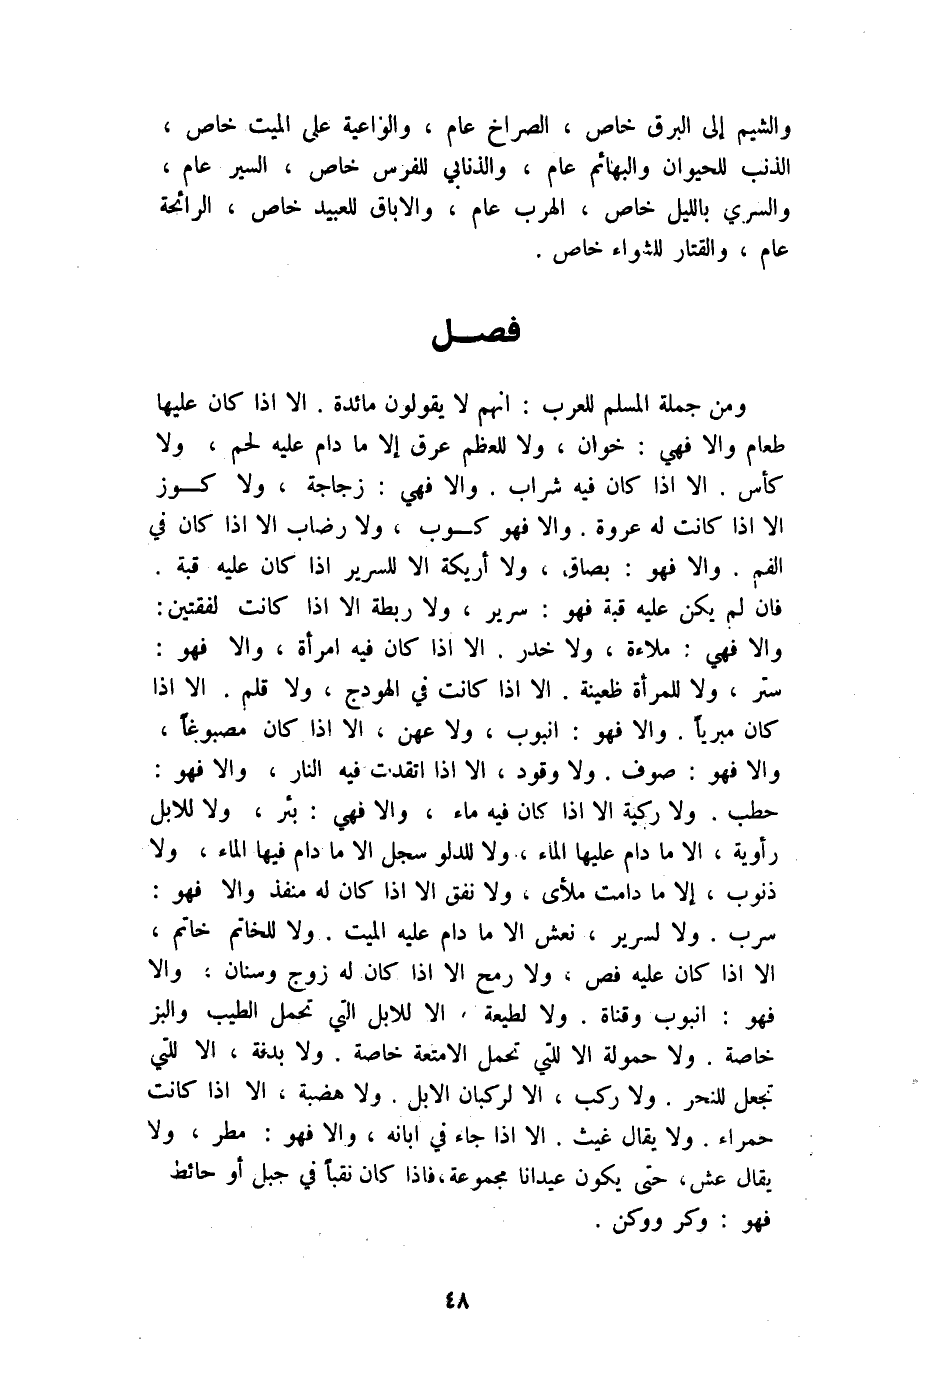 والشيم إلى البرق خاص ، الصراخ عام ، والواعية على الميت خاص ،
الذنب للحيوان والبهائم عام ، والذنابي للفرس خاص ، السير عام ،
والسري بالليل خاص ، الهرب عام ، والاباق للعبيد خاص ، الرائحة
عام ، والقتار للشواء خاص .
فصـــل
ومن جملة المسلم للعرب : انهم لا يقولون مائدة . الا اذا كان عليها
طعام والا فهي : خوان ، ولا للعظم عرق إلا ما دام عليه لحم ، ولا
كأس . الا اذا كان فيه شراب . والا فهي : زجاجة ، ولا كـــوز
الا اذا كانت له عروة . والا فهو كـــوب ، ولا رضاب الا اذا كان في
الفم . والا فهو : بصاق ، ولا أريكة الا للسرير اذا كان عليه قبة .
فان لم يكن عليه قبة فهو : سرير ، ولا ربطة الا اذا كانت لفقتين :
والا فهي : ملاءة ، ولا خدر . الا اذا كان فيه امرأة ، والا فهو :
ستر ، ولا للمرأة ظعينة . الا اذا كانت في الهودج ، ولا قلم . الا اذا
كان مبرياً . والا فهو : انبوب ، ولا عهن ، الا اذا كان مصبوغاً ،
والا فهو : صوف . ولا وقود ، الا اذا اتقدت فيه النار ، والا فهو :
حطب . ولا ركية الا اذا كان فيه ماء ، والا فهي : بئر ، ولا للابل
رأوية ، الا ما دام عليها الماء ، ولا للدلو سجل الا ما دام فيها الماء ، ولا
ذنوب ، إلا ما دامت ملأى ، ولا نفق الا اذا كان له منفذ والا فهو :
سرب . ولا لسرير ، نعش الا ما دام عليه الميت . ولا للخاتم خاتم ،
الا اذا كان عليه فص ، ولا رمح الا اذا كان له زوج وسنان ؛ والا
فهو : انبوب وقناة . ولا لطيعة ، الا للابل التي تحمل الطيب والبز
خاصة . ولا حمولة الا للتي تحمل الامتعة خاصة . ولا بدنة ، الا للتي
تجعل للنحر . ولا ركب ، الا لركبان الابل . ولا هضبة ، الا اذا كانت
حمراء . ولا يقال غيث . الا اذا جاء في ابانه ، والا فهو : مطر ، ولا
يقال عش، حتى يكون عيدانا مجموعة،فاذا كان نقباً في جبل أو حائط
فهو : وكر ووكن .
٤٨